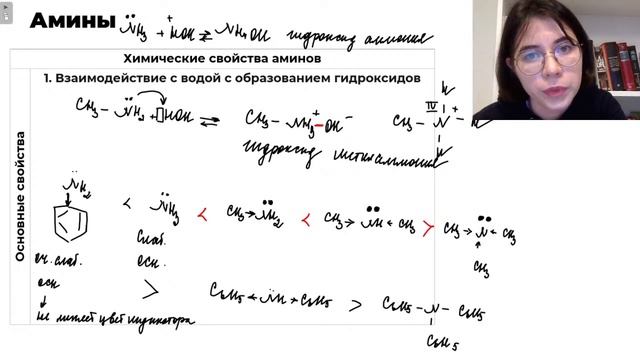 Амины
NH₃ + HOH ⇄ NH₄OH гидроксид аммония
Химические свойства аминов
1. Взаимодействие с водой с образованием гидроксидов
Основные свойства
CH₃ – NH₂ + HOH ⇄ CH₃ – NH₃⁺ – OH⁻
гидроксид метиламмония
IV
H
CH₃ – N⁺ – H
H
NH₂ < NH₃ < CH₃ → NH₂ < CH₃ → NH ← CH₃ > CH₃ → N ← CH₃
CH₃
оч. слаб.
осн
слаб.
осн.
не меняет цвет индикатора
> C₆H₅ ← NH → C₆H₅ > C₆H₅ – N – C₆H₅
C₆H₅